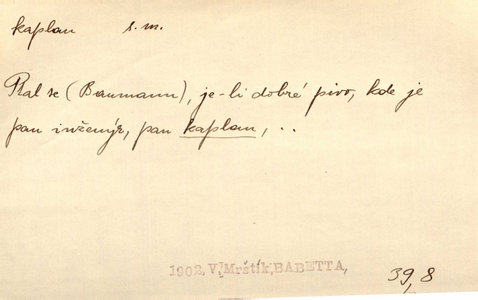 kaplan s.m.
Ptal se (Baumann), je-li dobré pivo, kde je
pan inženýr, pan kaplan, ..
1902, V. Mrštík, BABETTA,
39,8